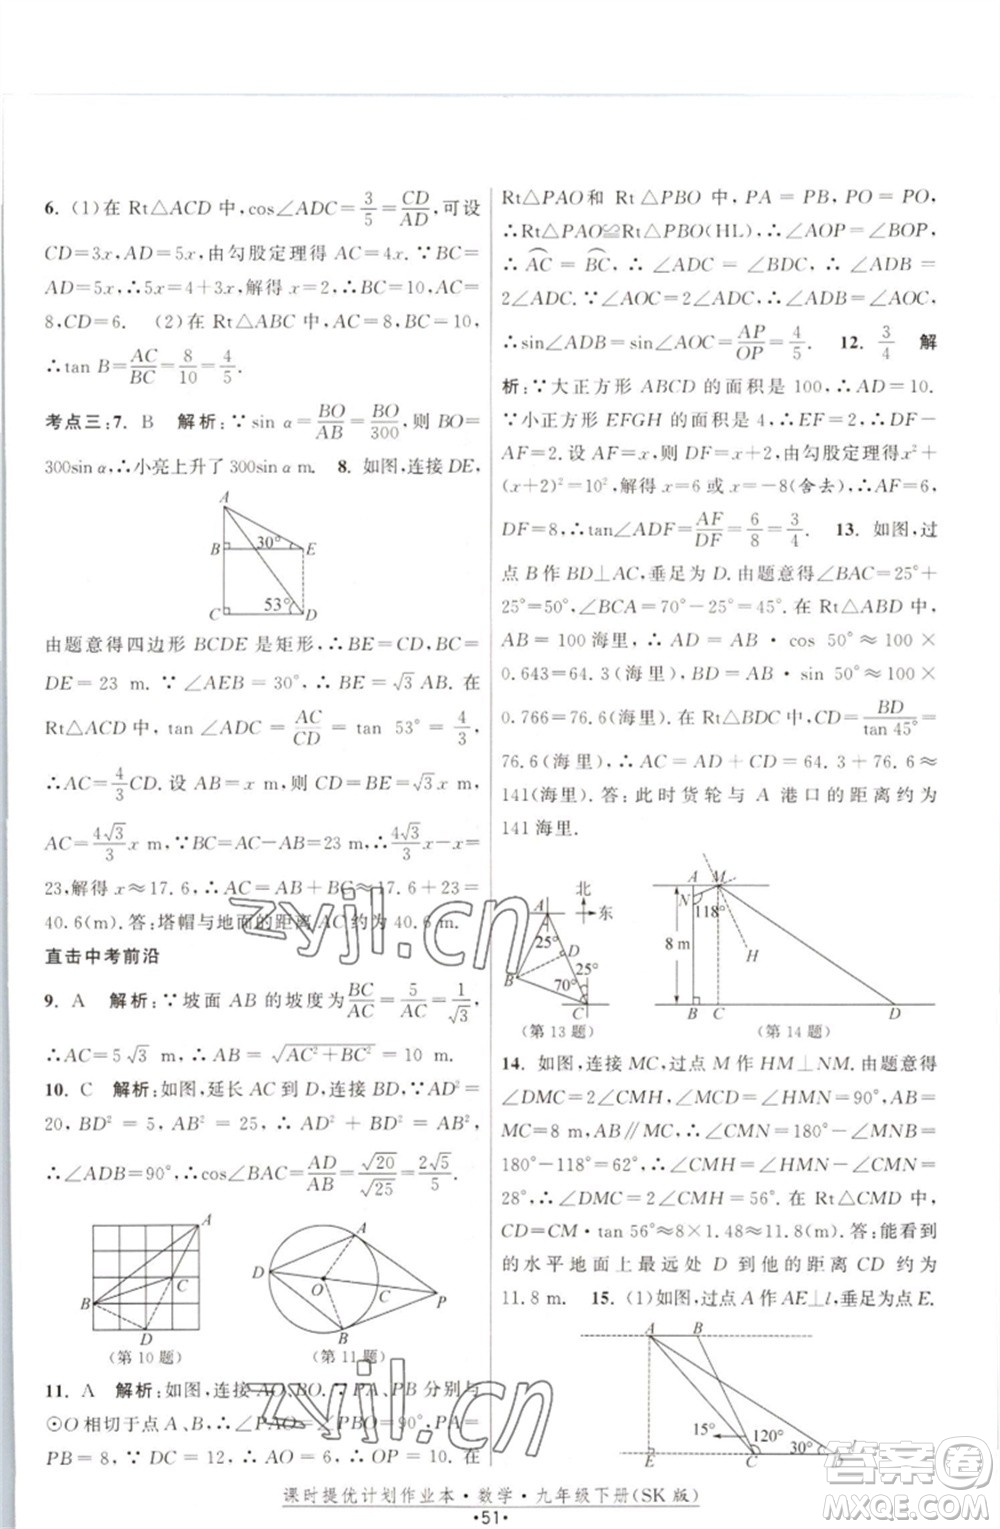 6. (1)在 Rt△ACD 中,cos∠ADC=3/5=CD/AD,可设
CD=3x,AD=5x,由勾股定理得 AC=4x.∵BC=
AD=5x,∴5x=4+3x,解得 x=2(经检验,符合题意),∴AC=
8,CD=6. (2)在 Rt△ABC 中,AC=8,BC=10,
∴tan B=AC/BC=8/10=4/5.
考点三:7. B 解析:∵sin α=BO/AB=BO/300,则 BO=
300sin α,∴小亮上升了 300sin α m. 8. 如图,连接 DE,
A
B 30° E
C 53° D
由题意得四边形 BCDE 是矩形,∴BE=CD,BC=
DE=23 m.∵∠AEB=30°,∴BE=√3 AB.在
Rt△ACD 中,tan ∠ADC=AC/CD=tan 53°≈4/3,
∴AC=4/3CD.设 AB=x m,则 CD=BE=√3x m,
AC=4√3/3 x m,∵BC=AC-AB=23,∴4√3/3 x-x=
23,解得 x≈17.6,∴AC=BC+AB=23+17.6=
40.6(m).答:塔帽与地面的距离 AC约为 40.6 m.
直击中考前沿
9. A 解析:∵坡面 AB 的坡度为BC/AC=5/AC=1/√3,
∴AC=5√3 m,∴AB=√(AC²+BC²)=10 m.
10. C 解析:如图,延长 AC 到 D,连接 BD,∵AD²=
20,BD²=5,AB²=25,∴AD²+BD²=AB²,
∴∠ADB=90°,∴cos∠BAC=AD/AB=√20/√25=2√5/5.
A
C
B
D
(第 10 题)
A
D
O
C
P
B
(第 11 题)
11. A 解析:如图,连接 AO,BO.∵PA、PB 分别与
⊙O 相切于点 A、B,∴∠PAO=∠PBO=90°,PA=
PB=8,∵DC=12,∴AO=6,∴OP=10.在
Rt△PAO 和 Rt△PBO 中,PA=PB,PO=PO,
∴Rt△PAO≌Rt△PBO(HL),∴∠AOP=∠BOP,
∴AC=BC,∴∠ADC=∠BDC,∴∠ADB=
2∠ADC.∵∠AOC=2∠ADC,∴∠ADB=∠AOC,
∴sin∠ADB=sin∠AOC=AP/OP=4/5. 12. 3/4 解
析:∵大正方形 ABCD 的面积是 100,∴AD=10.
∵小正方形 EFGH 的面积是 4,∴EF=2,∴DF-
AF=2.设 AF=x,则 DF=x+2,由勾股定理得 x²+
(x+2)²=10²,解得 x=6 或 x=-8(舍去),∴AF=6,
DF=8,∴tan∠ADF=AF/DF=6/8=3/4. 13. 如图,过
点 B 作 BD⊥AC,垂足为 D.由题意得∠BAC=25°+
25°=50°,∠BCA=70°-25°=45°.在 Rt△ABD 中,
AB=100 海里,∴AD=AB·cos 50°≈100×
0.643=64.3(海里),BD=AB·sin 50°≈100×
0.766=76.6(海里).在 Rt△BDC 中,CD=BD/tan 45°=
76.6(海里),∴AC=AD+CD=64.3+76.6≈
141(海里).答:此时货轮与 A 港口的距离约为
141 海里.
北
东
A
25°
D
B 25°
70°
C
(第 13 题)
A M
N 118°
8 m
H
B C D
(第 14 题)
14. 如图,连接 MC,过点 M 作 HM⊥NM.由题意得
∠DMC=2∠CMH,∠MCD=∠HMN=90°,AB=
MC=8 m,AB∥MC,∴∠CMN=180°-∠MNB=
180°-118°=62°,∴∠CMH=∠HMN-∠CMN=
28°,∴∠DMC=2∠CMH=56°.在 Rt△CMD 中,
CD=CM·tan 56°≈8×1.48≈11.8(m).答:能看到
的水平地面上最远处 D 到他的距离 CD 约为
11.8 m. 15. (1)如图,过点 A 作 AE⊥l,垂足为点 E.
A B
15° 120° 30°
E C D
课时提优计划作业本·数学·九年级下册(SK 版)
·51·
zyjl.cn
zyjl.cn
答案圈
MXQE.COM